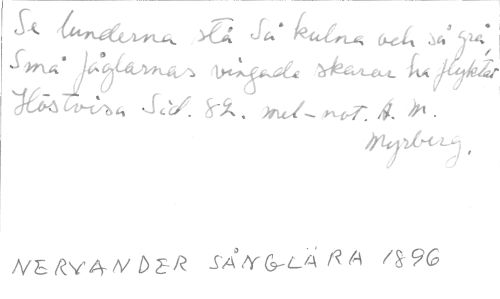 Se lunderna stå Så kulna och så grå,
Små fåglarnas vingade skaror ha flyktat
Höstvisa Sid. 82. mel-not. A. M.
Myrberg.
NERVANDER SÅNGLÄRA 1896